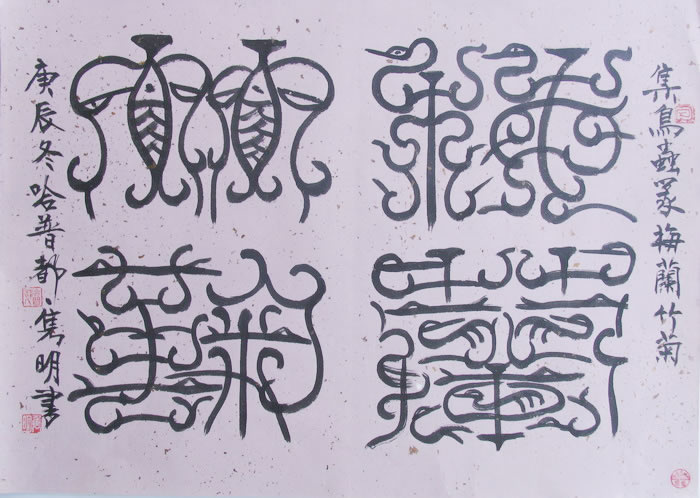 集鳥蟲篆梅蘭竹菊
梅蘭
竹菊
庚辰冬哈普都·隽明書